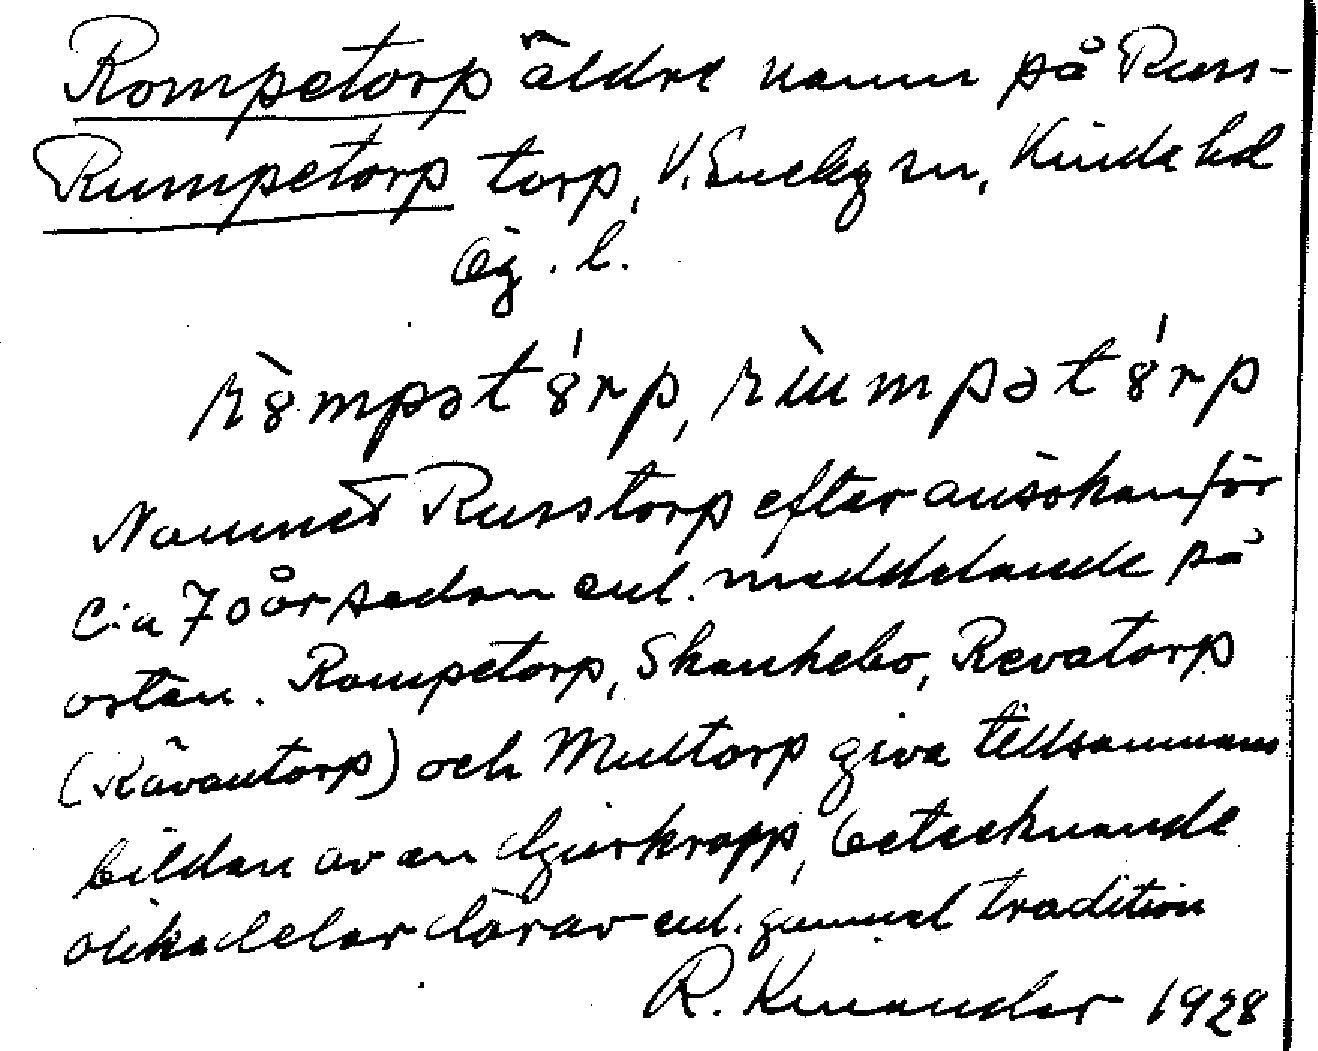 Rompetorp äldre namn på Russ-
Rumpetorp torp, V. Eneby sn, Kinda hd
Ög. l.
r8̀mpət8́rp, rùmpət8́rp
Namnet Russtorp efter ansökan för
c:a 70 år sedan enl. meddelande på
orten. Rompetorp, Skankebo, Revatorp
(Rävantorp) och Multorp giva tillsammans
bilden av en djurkropp, betecknande
olika delar därav enl. gammal tradition
R. Kinander 1928